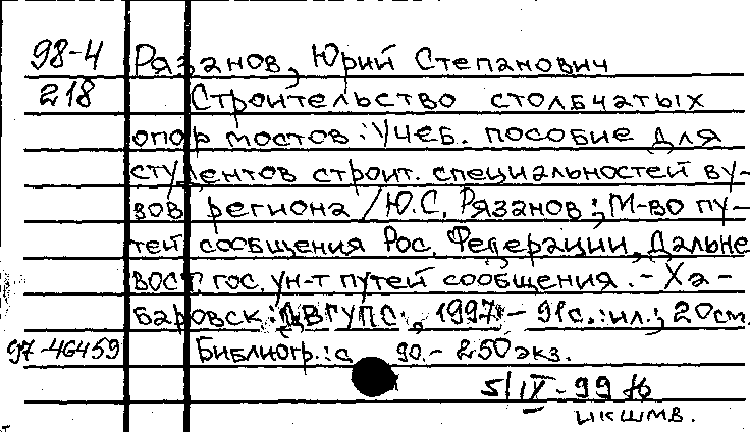 98-4 Рязанов, Юрий Степанович
218 Строительство столбчатых
опор мостов : Учеб. пособие для
студентов строит. специальностей ву-
зов региона / Ю.С. Рязанов ; М-во пу-
тей сообщения Рос. Федерации, Дальне
вост. гос. ун-т путей сообщения. - Ха-
баровск : ДВГУПС, 1997 - 91 с. : ил. ; 20 см.
97-46459 Библиогр.: с 90. - 250 экз.
5/IV-99